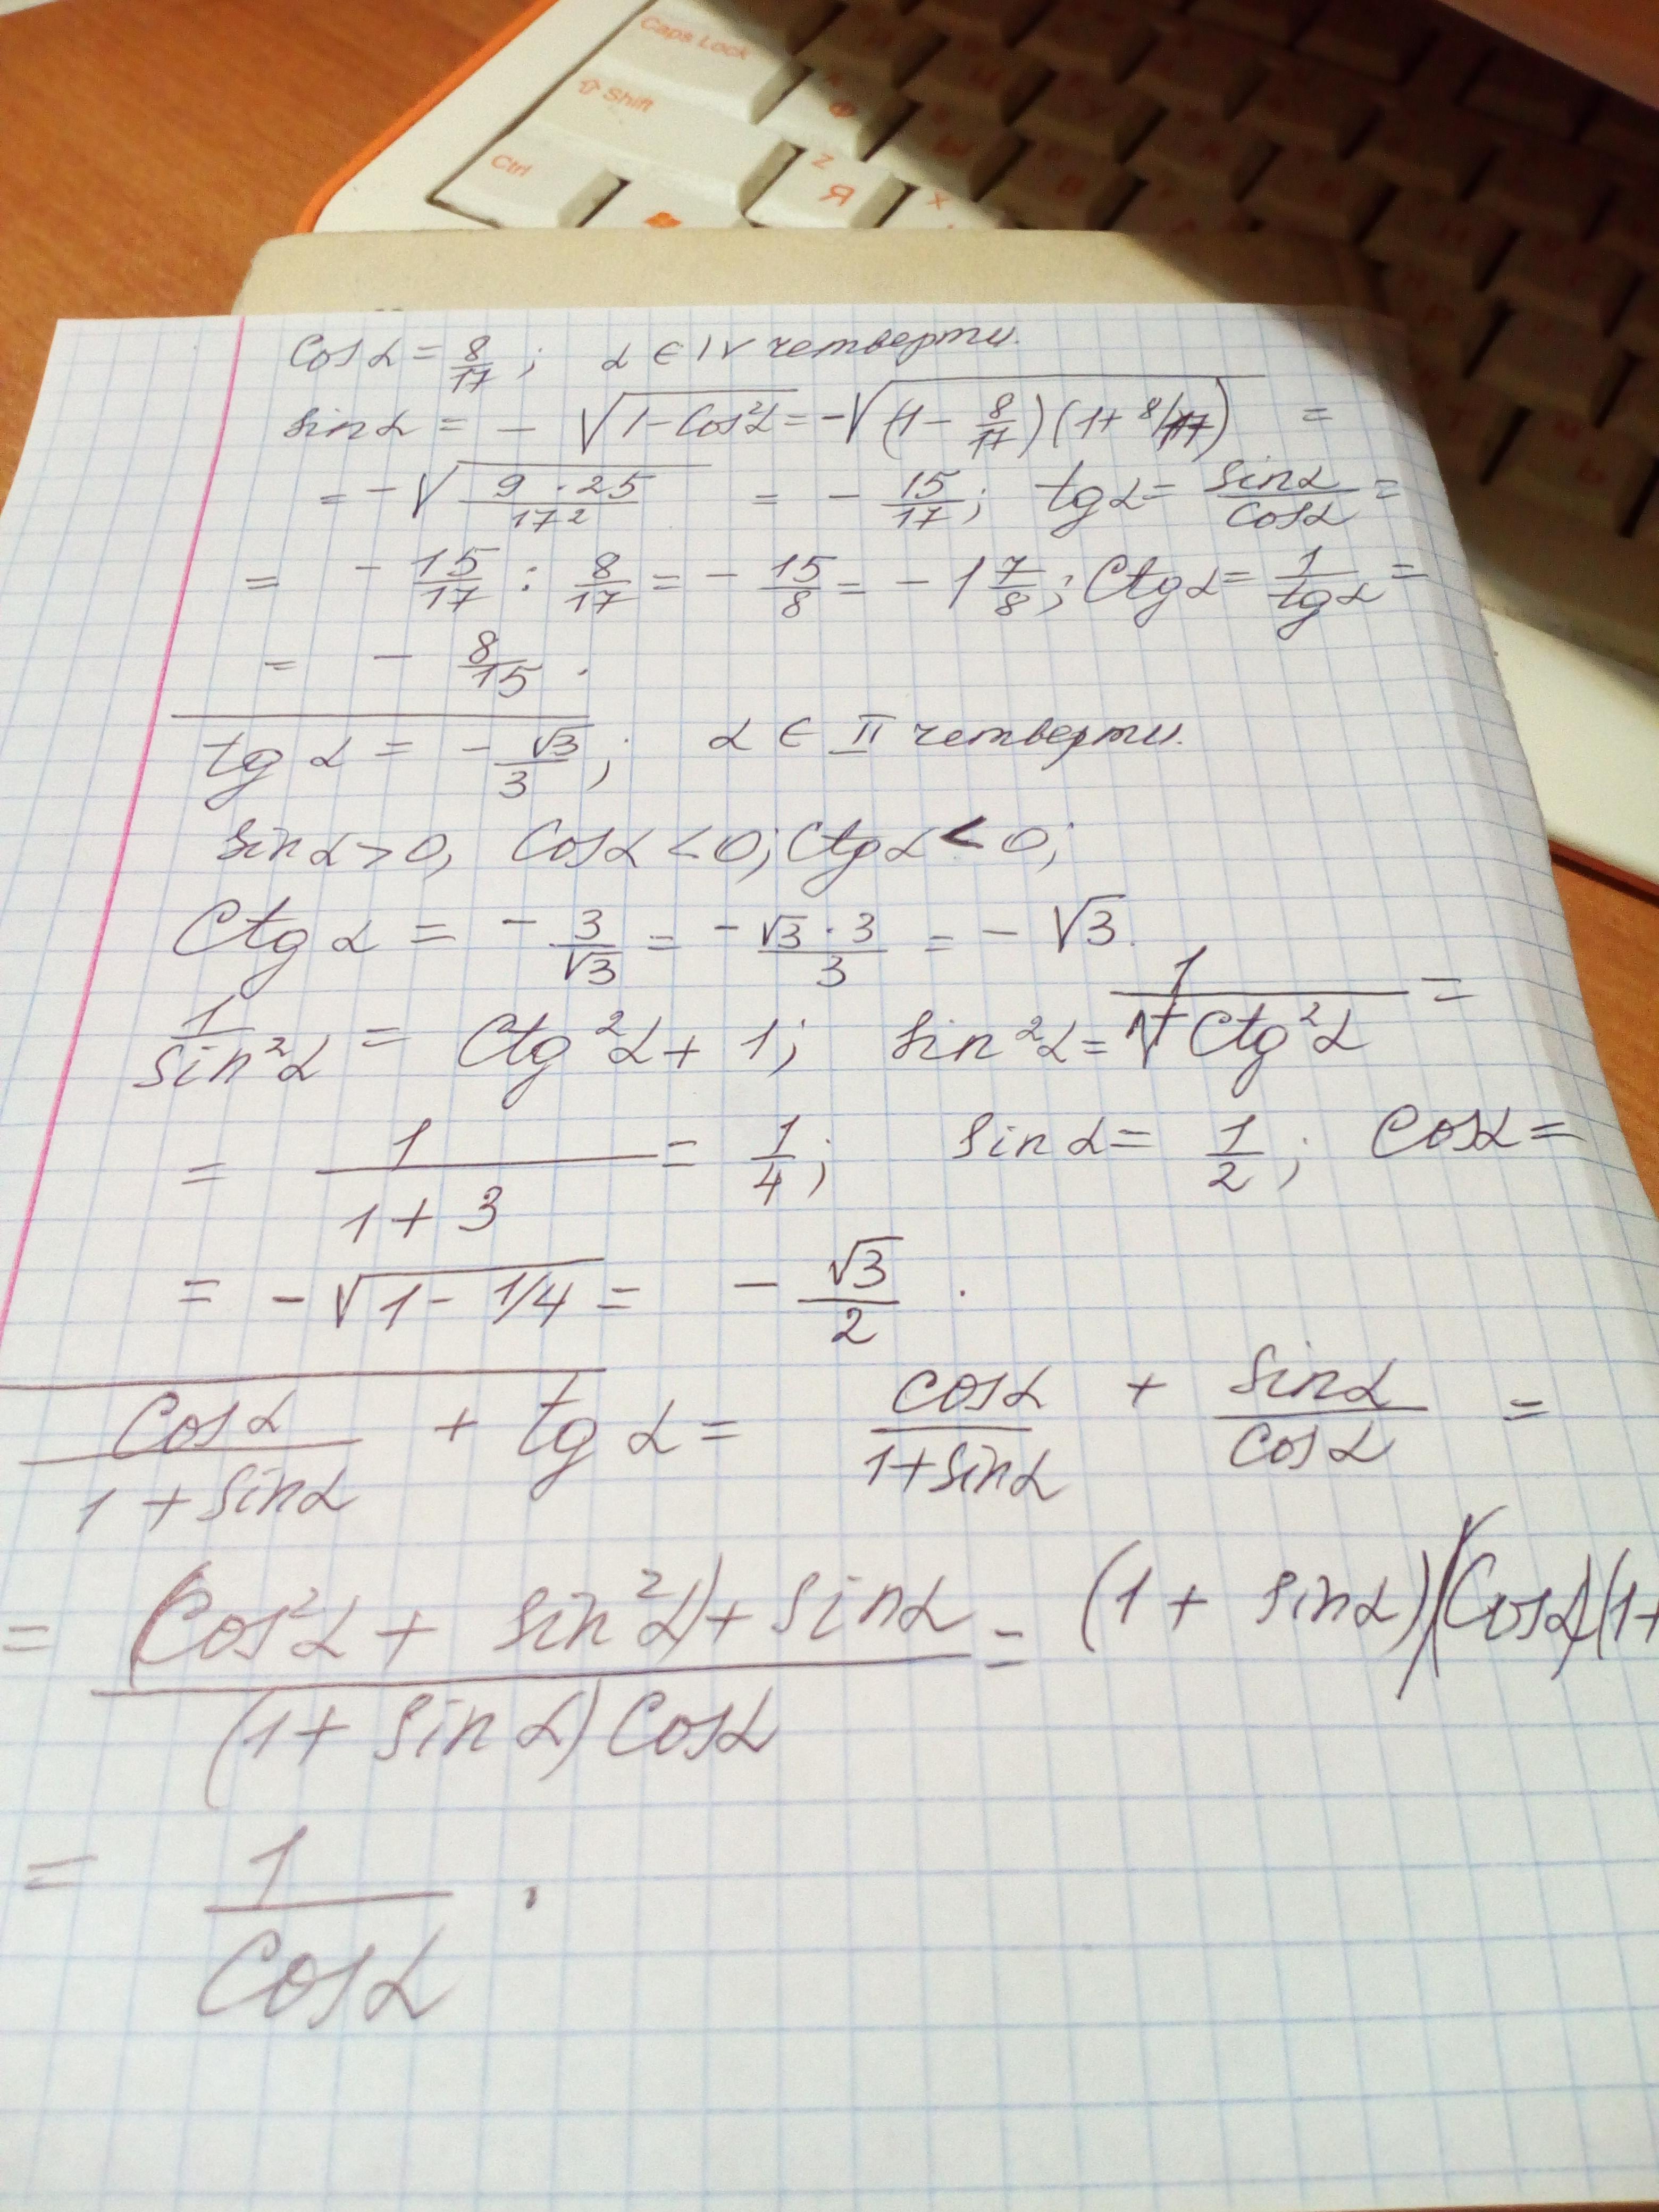 Caps Lock
Shift
Ctrl
Z
Я
X
Ф
cos α = 8/17 ; α ∈ IV четверти.
sin α = - √(1 - cos²α) = -√((1 - 8/17)(1 + 8/17)) =
= -√(9 · 25 / 17²) = - 15/17 ; tg α = sin α / cos α =
= - 15/17 : 8/17 = - 15/8 = - 1 7/8 ; Ctg α = 1 / tg α =
= - 8/15 .
tg α = - √3/3 ; α ∈ II четверти.
sin α > 0, cos α < 0; Ctg α < 0;
Ctg α = - 3/√3 = - √3 · 3 / 3 = - √3.
1 / sin²α = Ctg²α + 1; sin²α = 1 / (1 + Ctg²α) =
= 1 / (1 + 3) = 1/4 ; sin α = 1/2 ; cos α =
= - √(1 - 1/4) = - √3/2 .
cos α / (1 + sin α) + tg α = cos α / (1 + sin α) + sin α / cos α =
= ((cos²α + sin²α) + sin α) / ((1 + sin α) cos α) = (1 + sin α) / (cos α (1 +
= 1 / cos α .